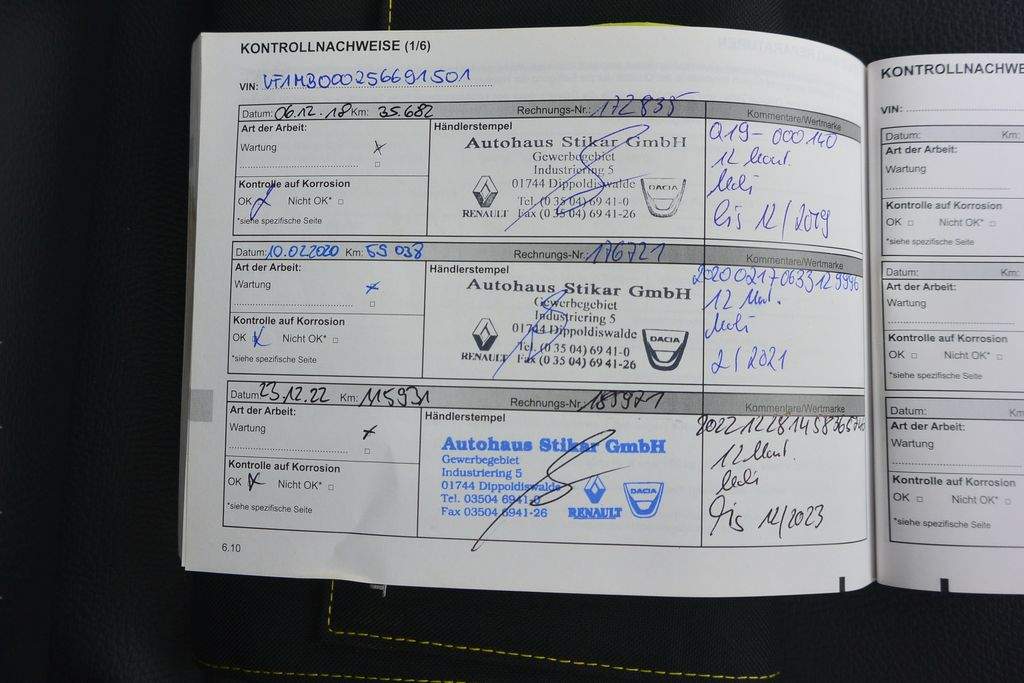 KONTROLLNACHWEISE (1/6)
VIN: VF1MB000256691501
Datum: 06.12.18 Km: 35.682 Rechnungs-Nr.: 172835 Kommentare/Wertmarke
Art der Arbeit:
Wartung x
Kontrolle auf Korrosion
OK x Nicht OK* □
*siehe spezifische Seite
Händlerstempel
Autohaus Stikar GmbH
Gewerbegebiet
Industriering 5
01744 Dippoldiswalde
Tel. (0 35 04) 69 41-0
Fax (0 35 04) 69 41-26
RENAULT
DACIA
Q19-000140
12 Monat.
Mobi
bis 12/2019
Datum: 10.02.2020 Km: 59 038 Rechnungs-Nr.: 176721 Kommentare/Wertmarke
Art der Arbeit:
Wartung x
Kontrolle auf Korrosion
OK x Nicht OK* □
*siehe spezifische Seite
Händlerstempel
Autohaus Stikar GmbH
Gewerbegebiet
Industriering 5
01744 Dippoldiswalde
Tel. (0 35 04) 69 41-0
Fax (0 35 04) 69 41-26
RENAULT
DACIA
20200217063312 9996
12 Mon.
Mobi
2/2021
Datum: 23.12.22 Km: 115931 Rechnungs-Nr.: 189971 Kommentare/Wertmarke
Art der Arbeit:
Wartung x
Kontrolle auf Korrosion
OK x Nicht OK* □
*siehe spezifische Seite
Händlerstempel
Autohaus Stikar GmbH
Gewerbegebiet
Industriering 5
01744 Dippoldiswalde
Tel. 03504 6941-0
Fax 03504 6941-26
RENAULT
DACIA
12 Monat.
Mobi
Bis 12/2023
6.10
KONTROLLNACHWE
VIN:
Datum: Km:
Art der Arbeit:
Wartung
Kontrolle auf Korrosion
OK □ Nicht OK* □
*siehe spezifische Seite
Datum: Km:
Art der Arbeit:
Wartung
Kontrolle auf Korrosion
OK □ Nicht OK* □
*siehe spezifische Seite
Datum: Km
Art der Arbeit:
Wartung
Kontrolle auf Korrosion
OK □ Nicht OK* □
*siehe spezifische Seite